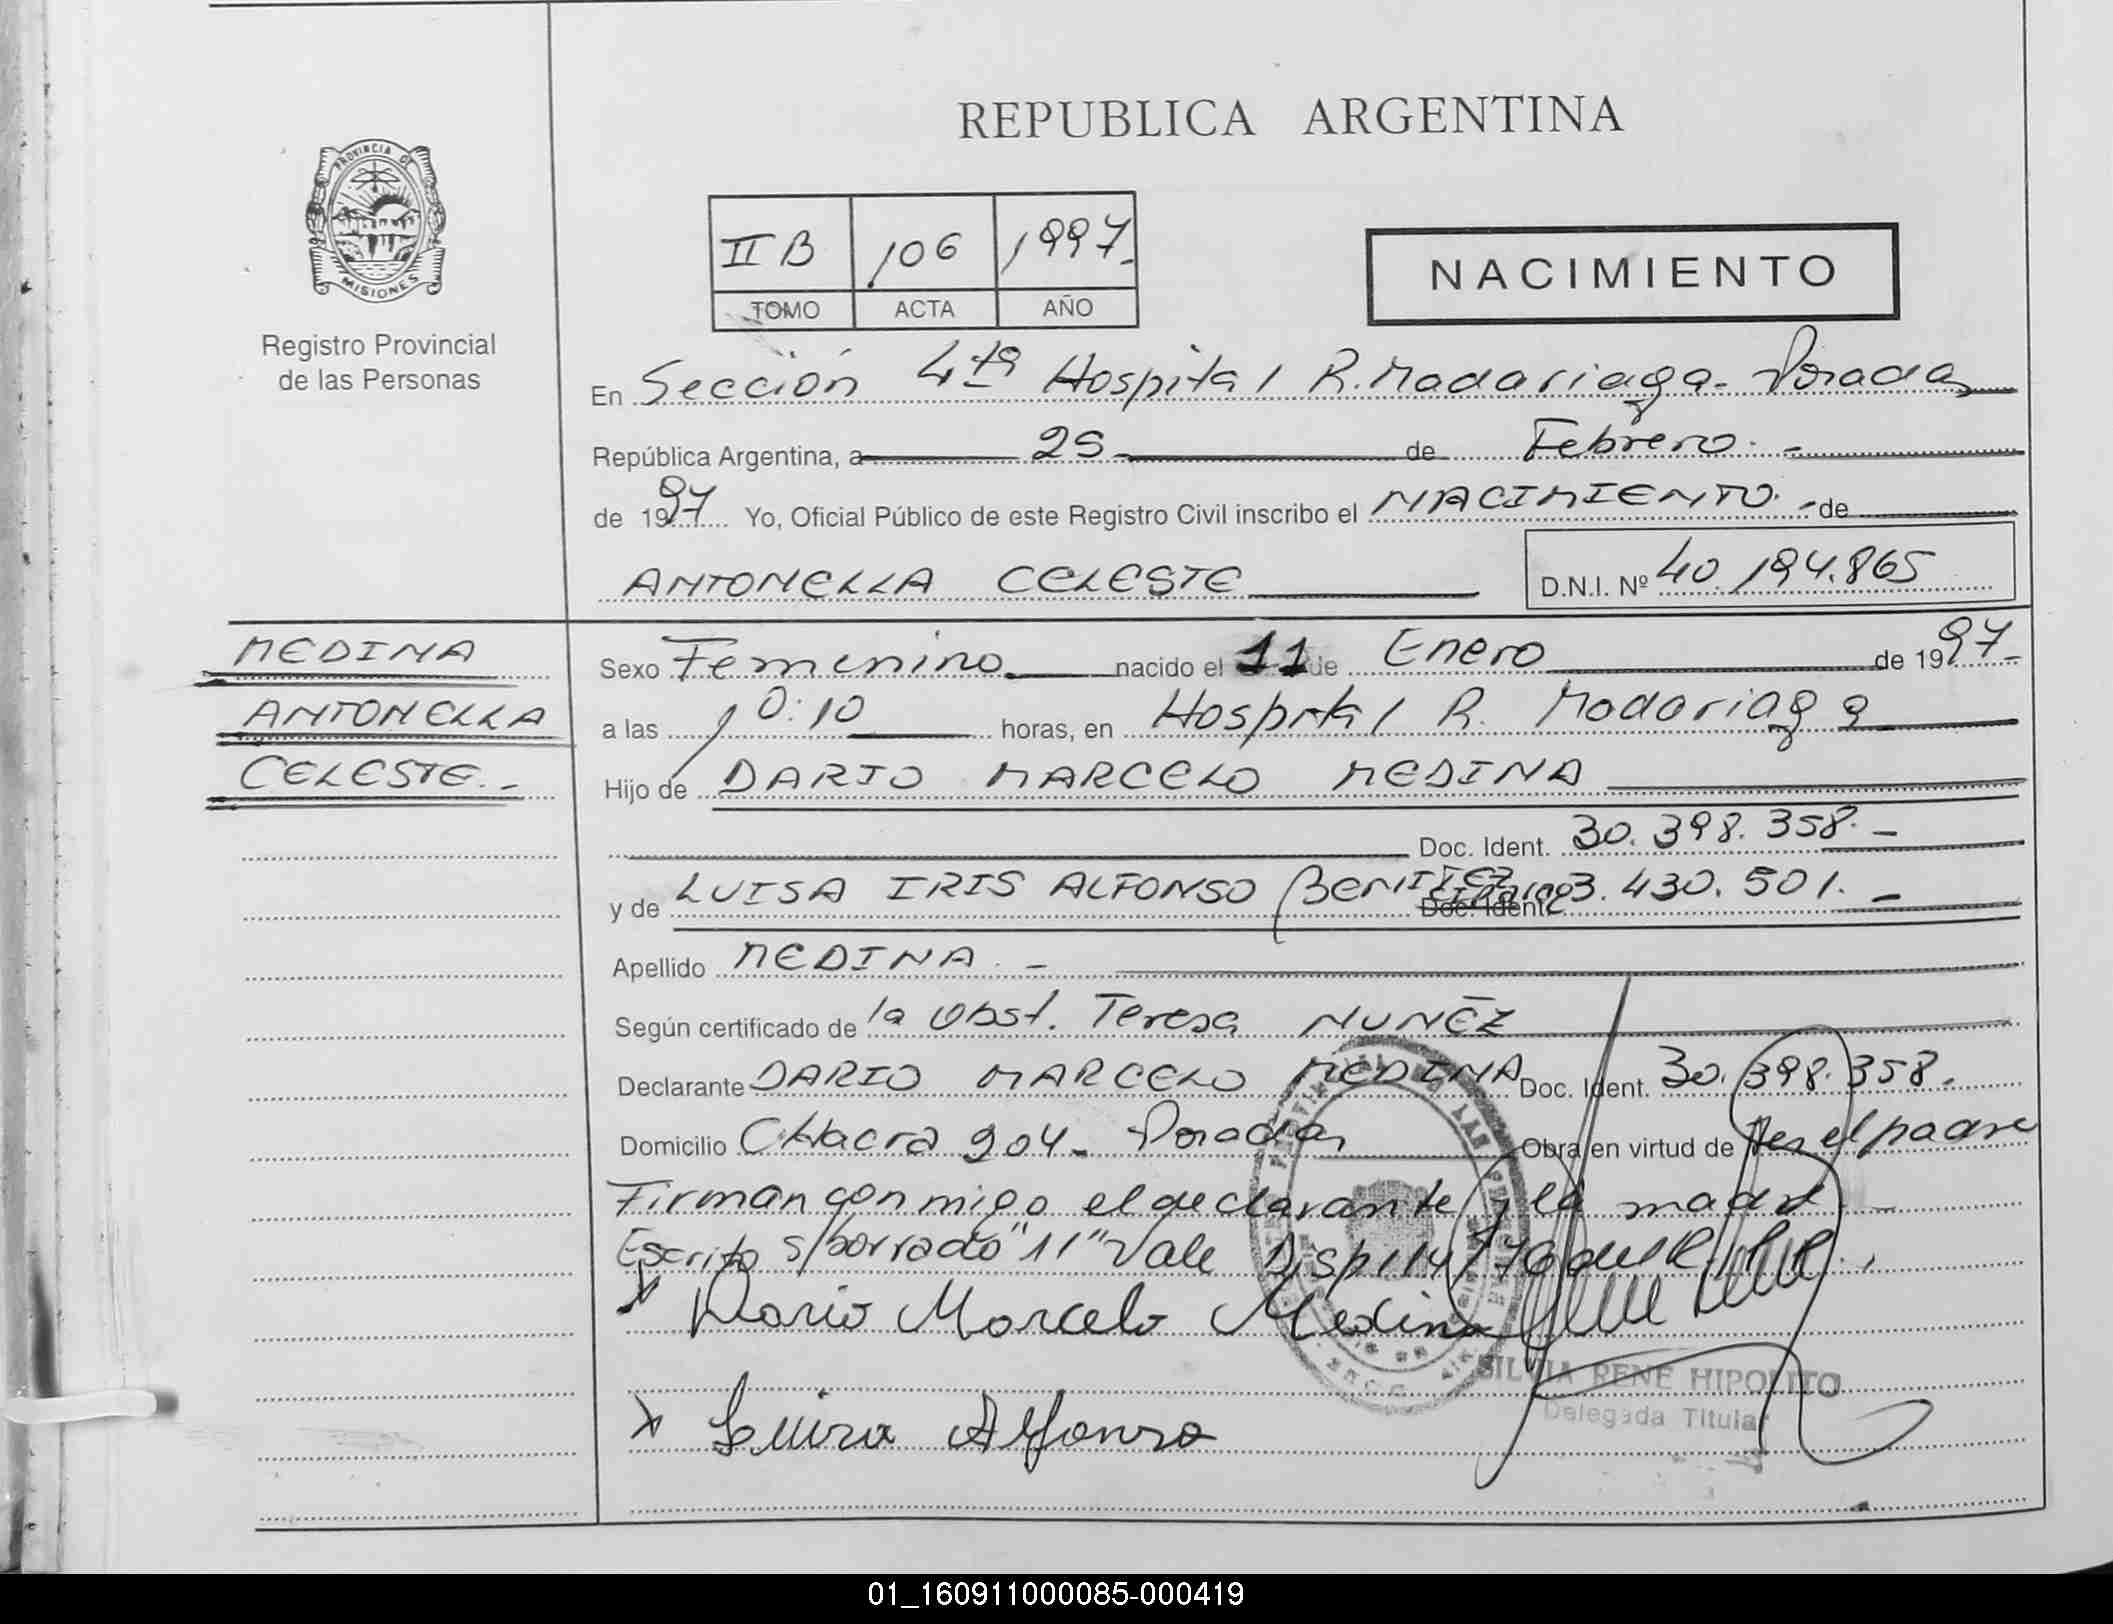 REPUBLICA ARGENTINA
PROVINCIA DE
MISIONES
Registro Provincial
de las Personas
II B 106 1997.
TOMO ACTA AÑO
NACIMIENTO
En Sección 4ta Hospital R. Madariaga - Posadas
República Argentina, a 25 de Febrero. -
de 1997 Yo, Oficial Público de este Registro Civil inscribo el NACIMIENTO. - de
ANTONELLA CELESTE D.N.I. Nº 40.194.865
MEDINA
ANTONELLA
CELESTE. -
Sexo Femenino nacido el 11 de Enero de 1997.
a las 10:10 horas, en Hospital R. Madariaga
Hijo de DARIO MARCELO MEDINA
Doc. Ident. 30.398.358. -
y de LUISA IRIS ALFONSO BENITEZ Doc. Ident. 3.430.501. -
Apellido MEDINA. -
Según certificado de la Obst. Teresa NUÑEZ
Declarante DARIO MARCELO MEDINA Doc. Ident. 30.398.358.
Domicilio CHacra 204 - Posadas Obra en virtud de ser el padre
Firman conmigo el declarante y la madre
Escrito s/borrado "11" Vale Disp 114/76 del R.P.P.
x Dario Marcelo Medina
SILVIA RENE HIPOLITO
Delegada Titular
x Luisa Alfonso
01_160911000085-000419